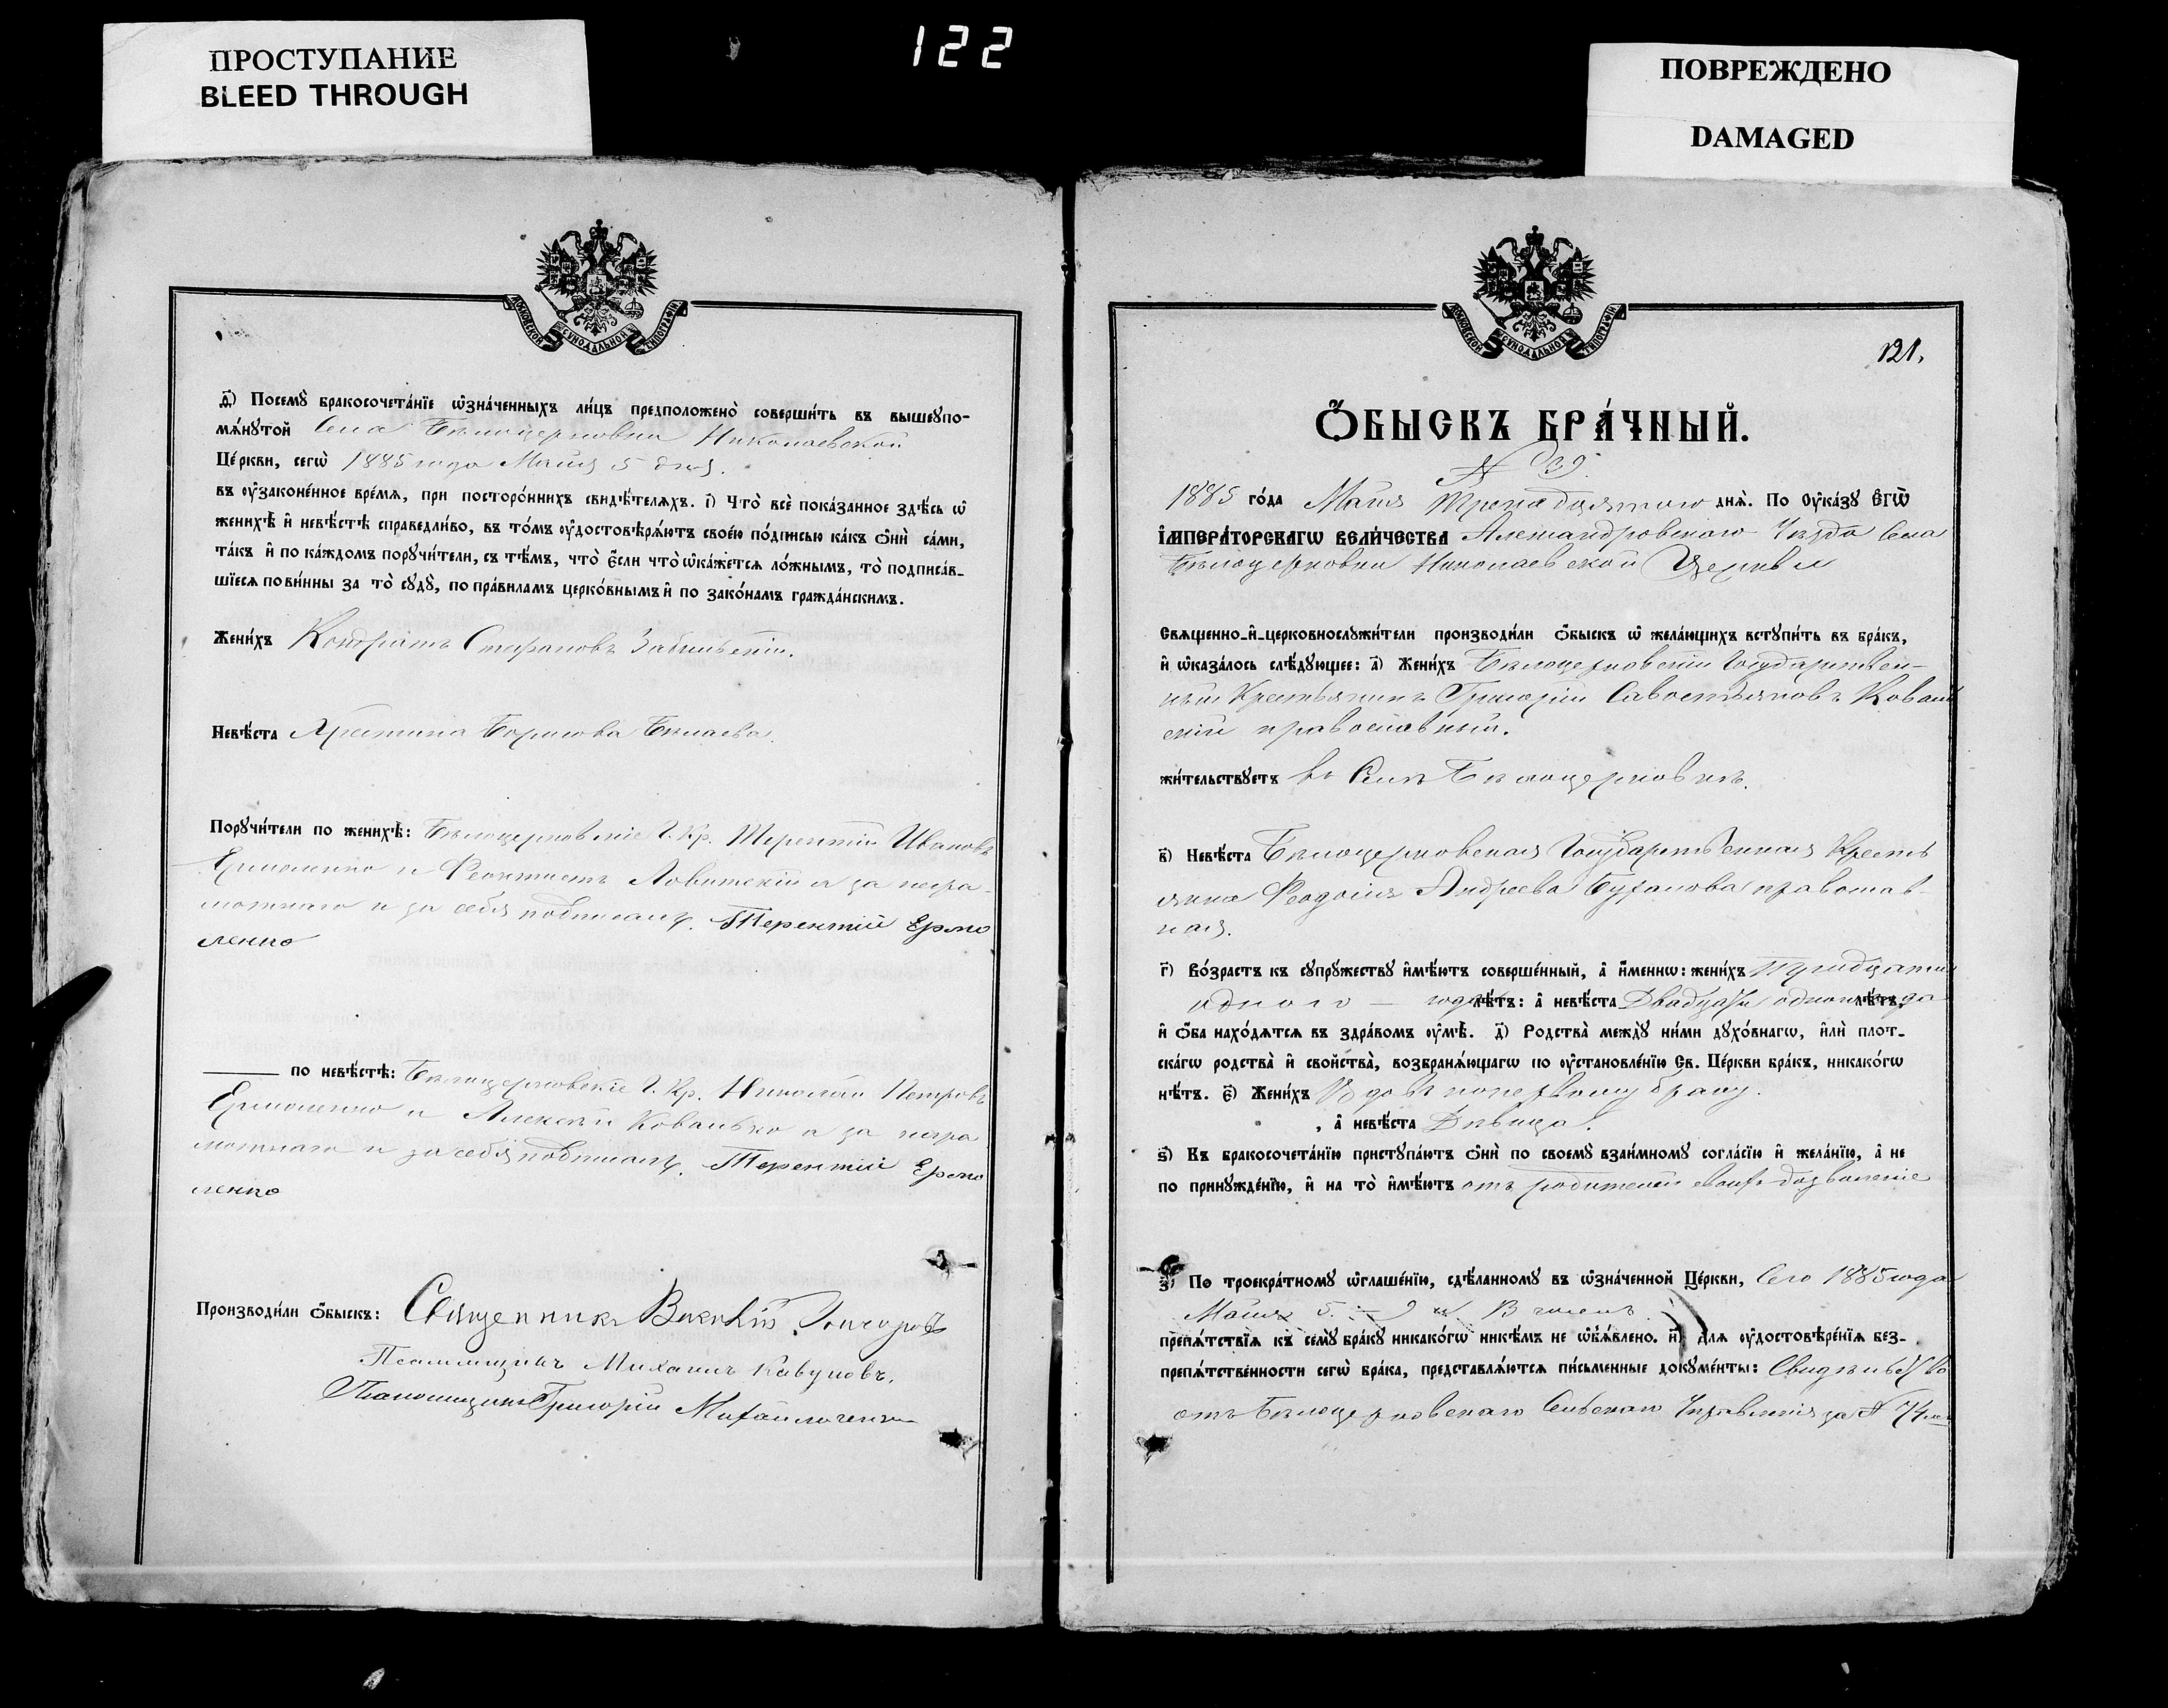 ПРОСТУПАНИЕ
BLEED THROUGH
122
ПОВРЕЖДЕНО
DAMAGED
МОСКОВСКОЙ СѴНОДАЛЬНОЙ ТИПОГРАФІИ
д҃) Посемꙋ̀ бракосочета́нїе ѡ҆зна́ченныхъ ли́цъ предположено̀ соверши́ть въ вышеꙋпо-
мѧ́нꙋтой Села Бѣлоцерковки Николаевской
Це́ркви, сегѡ̀ 1885 года Маія 5 дня.
въ ᲂу҆зако́не́нное вре́мѧ, при посторо́ннихъ свидѣ́телѧхъ. і҃) Что̀ всѐ пока́занное здѣ́сь ѡ҆
женихѣ̀ и҆ невѣ́стѣ справедли́во, въ то́мъ ᲂу҆достовѣрѧ́ютъ свое́ю по́дписью ка́къ ѻ҆нѝ са́ми,
та́къ и҆ по ка́ждомъ порꙋчи́тели, съ тѣ́мъ, что̀ є҆́сли что̀ ѡ҆ка́жетсѧ ло́жнымъ, то̀ подписа́в-
шїесѧ пови́нны за то̀ сꙋдꙋ̀, по пра́виламъ церко́внымъ и҆ по зако́намъ гражда́нскимъ.
Жени́хъ Кондратъ Стефановъ
Невѣ́ста Христина Борисова Бѣлаева.
Порꙋчи́тели по женихѣ̀: Бѣлоцерковскіе Г. Кр. Терентій Ивановъ
Ермоленко и Феоктистъ Ловитскій а за негра-
мотнаго и за себя подписалъ. Терентій Ермо
ленко
по невѣ́стѣ: Бѣлоцерковскіе Г. Кр. Николай Петровъ
Ермоленко и Алексѣй Ковалько а за негра
мотнаго и за себя подписалъ. Терентій Ермо
ленко
Производи́ли ѻ҆́быскъ: Священникъ
Псаломщикъ Михаилъ Кавуновъ.
Псаломщикъ Григорій Михайличенко
МОСКОВСКОЙ СѴНОДАЛЬНОЙ ТИПОГРАФІИ
121.
Ѻ҆́БЫСКЪ БРА́ЧНЫЙ.
№ 39.
1885 го́да Маія Тренадцятого днѧ̀. По Оу҆ка́зꙋ Є҆ГѠ̀
І҆МПЕРА́ТОРСКАГѠ ВЕЛИ́ЧЕСТВА Александровского Уѣзда Села
Бѣлоцерковки Николаевской Церкви
Свѧщенно-и҆-церковнослꙋжи́тели производи́ли ѻ҆́быскъ ѡ҆ жела́ющихъ встꙋпи́ть въ бра́къ,
и҆ ѡ҆каза́лось слѣ́дꙋющее: а҃) Жени́хъ Бѣлоцерковскій Государствен-
ный Крестьянинъ Григорій Савостьяновъ Ковалев
скій православный.
жи́тельствꙋетъ въ Селѣ Бѣлоцерковкѣ.
в҃) Невѣ́ста Бѣлоцерковская Государственная Кресть
янка Феодосія Андреева православ-
ная.
г҃) Во́зрастъ къ сꙋпрꙋ́жествꙋ и҆мѣ́ютъ соверше́нный, а҆ и҆́менно: жени́хъ Тридцати
одного — года лѣ́тъ: а҆ невѣ́ста Двадцати одного года лѣ́тъ,
и҆ ѻ҆́ба нахо́дѧтсѧ въ здра́вомъ ᲂу҆мѣ̀. д҃) Родства̀ междꙋ̀ ни́ми дꙋхо́внагѡ, и҆лѝ плот-
ска́гѡ родства̀ и҆ свойства̀, возбранѧ́ющагѡ по ᲂу҆становле́нїю Св. Це́ркви бра́къ, никако́гѡ
нѣ́тъ. є҃) Жени́хъ Вдовъ по первому браку.
, а҆ невѣ́ста Дѣвица.
ѕ҃) Къ бракосочета́нїю пристꙋпа́ютъ ѻ҆нѝ по своемꙋ̀ взаи́мномꙋ согла́сїю и҆ жела́нїю, а҆ не
по принꙋжде́нїю, и҆ на то̀ и҆мѣ́ютъ отъ родителей своихъ дозволеніе
з҃) По троекра́тномꙋ ѡ҆глаше́нїю, сдѣ́ланномꙋ въ ѡ҆зна́ченной Це́ркви, Сего 1885 года
Маія 5. числъ
препѧ́тствїѧ къ семꙋ̀ бра́кꙋ никако́гѡ никѣ́мъ не ѡ҆бъѧ́влено. и҃) Длѧ ᲂу҆достовѣре́нїѧ без-
препѧ́тственности сегѡ̀ бра́ка, представлѧ́ютсѧ пи́сьменные докꙋме́нты: Свидѣтельство
отъ Бѣлоцерковскаго Сельскаго Управленія за №